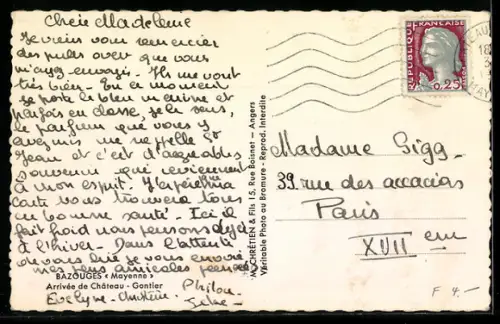 Chère Madeleine
Je viens vous remercier
des pulls over que vous
m'avez envoyé. Ils me vont
très bien. En ce moment
je porte le bleu marine et
parfois en classe, je le sens,
le parfum que vous y
avez mis me rappelle St
Jean et c'est d'agréables
souvenirs qui reviennent
à mon esprit. J'espère que ma
carte vous trouvera tous
en bonne santé. Ici il
fait froid nous pensons déjà
à l'hiver. Dans l'attente
de vous lire je vous envoie
mes bons amicales pensées
BAZOUGES « Mayenne »
Arrivée de Château-Gontier
Evelyne - Christine Philou
CHRÉTIEN & Fils 15, Rue Boisnet - Angers
Véritable Photo au Bromure - Reprod. Interdite
REPUBLIQUE
FRANÇAISE
0,25
18
3
Madame Sigg
39 rue des accacias
Paris
XVII em
F 4.-